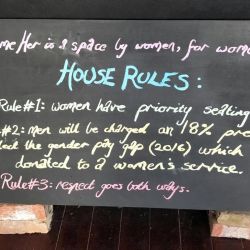 meHer is a space by women, for wome
HOUSE RULES:
Rule #1: women have priority seating
#2: men will be charged an 18% prem
lect the gender pay gap (2016) which
donated to a women's service.
Rule #3: respect goes both ways.